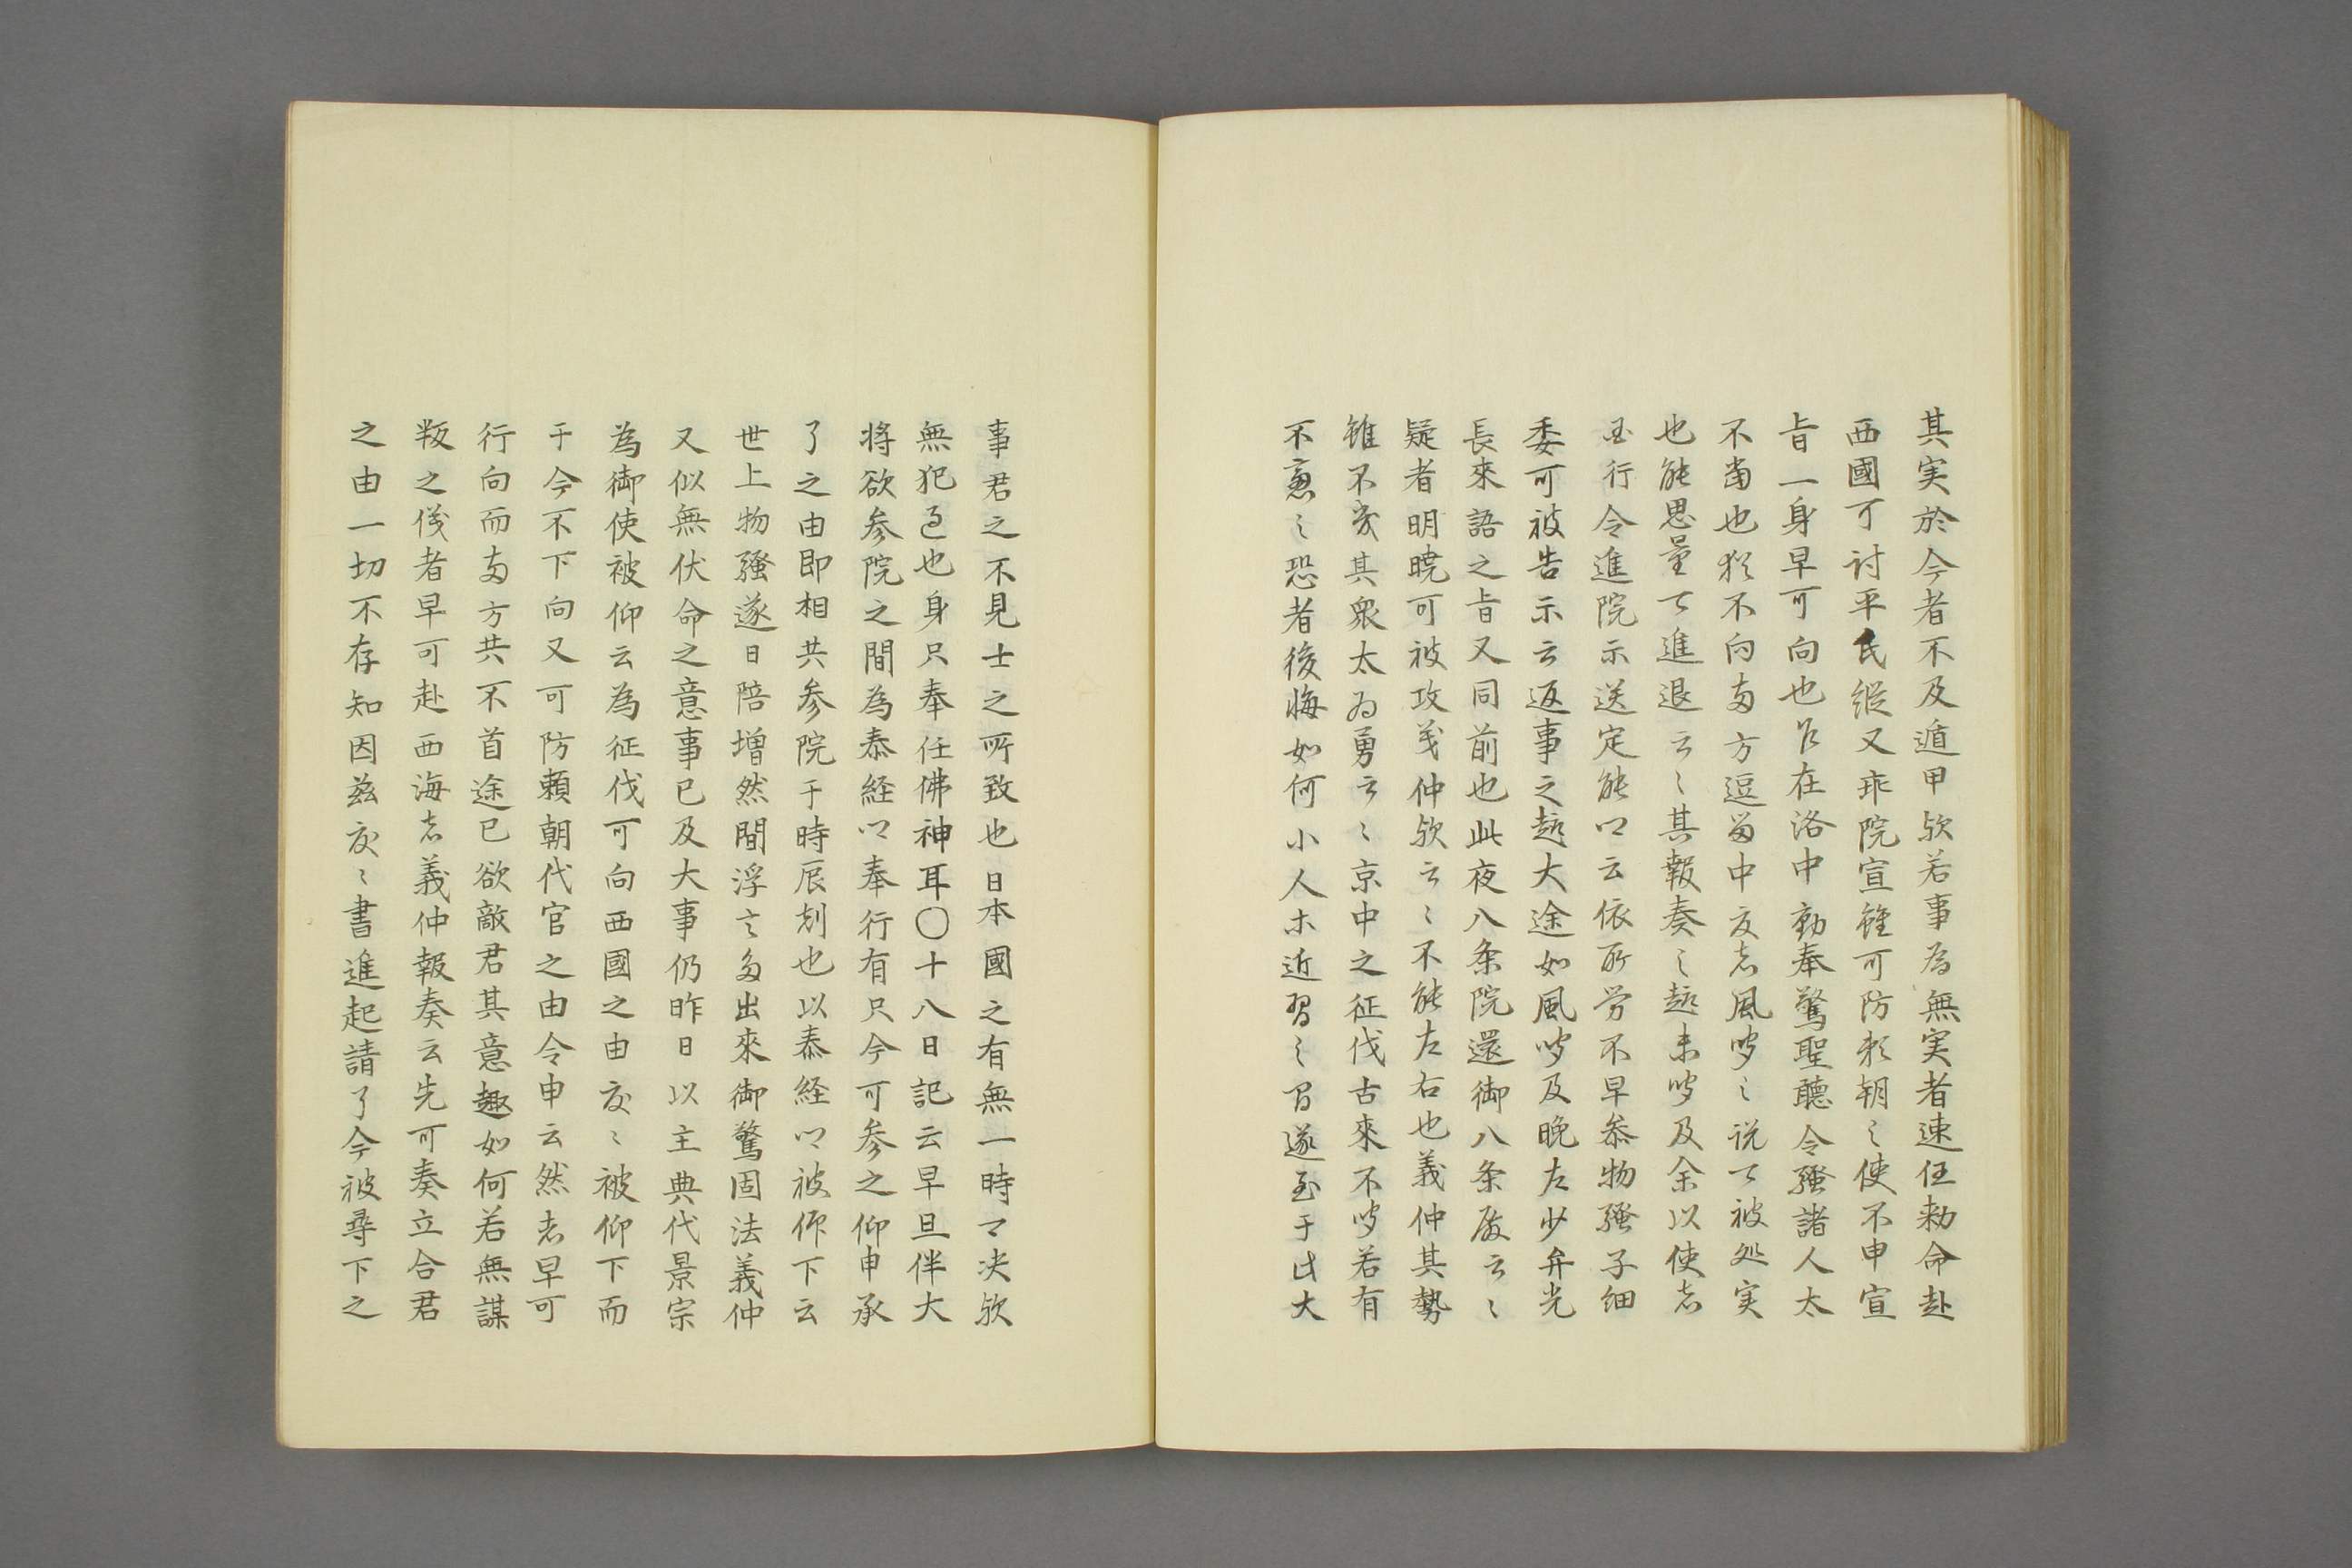 其実於今者不及遁甲欤若事為無実者速任勅命赴
西國可討平氏縦又乖院宣雖可防頼朝之使不申宣
旨一身早可向也乍在洛中動奉驚聖聽令騒諸人太
不當也猶不向西方逗留中夜者風聞之説可被処実
也能思量可進退云々其報奏之趣未聞及余以使者
国行令進院示送定能卿云依所労不早参物騒子細
委可被告示云返事之趣大途如風聞及晩左少弁光
長來語之旨又同前也此夜八条院還御八条殿云々
疑者明暁可被攻義仲欤云々不能左右也義仲其勢
雖不幾其衆太為勇云々京中之征伐古來不聞若有
不慮之恐者後悔如何小人等近習之間遂至于此大
事君之不見士之所致也日本國之有無一時可决欤
無犯過也身只奉任佛神耳〇十八日記云早旦伴大
将欲参院之間為泰経卿奉行有只今可参之仰申承
了之由即相共参院于時辰刻也以泰経卿被仰下云
世上物騒遂日陪増然間浮言多出來御驚固法義仲
又似無伏命之意事已及大事仍昨日以主典代景宗
為御使被仰云為征伐可向西國之由度々被仰下而
于今不下向又可防頼朝代官之由令申云然者早可
行向而両方共不首途已欲敵君其意趣如何若無謀
叛之儀者早可赴西海者義仲報奏云先可奏立合君
之由一切不存知因茲度々書進起請了今被尋下之